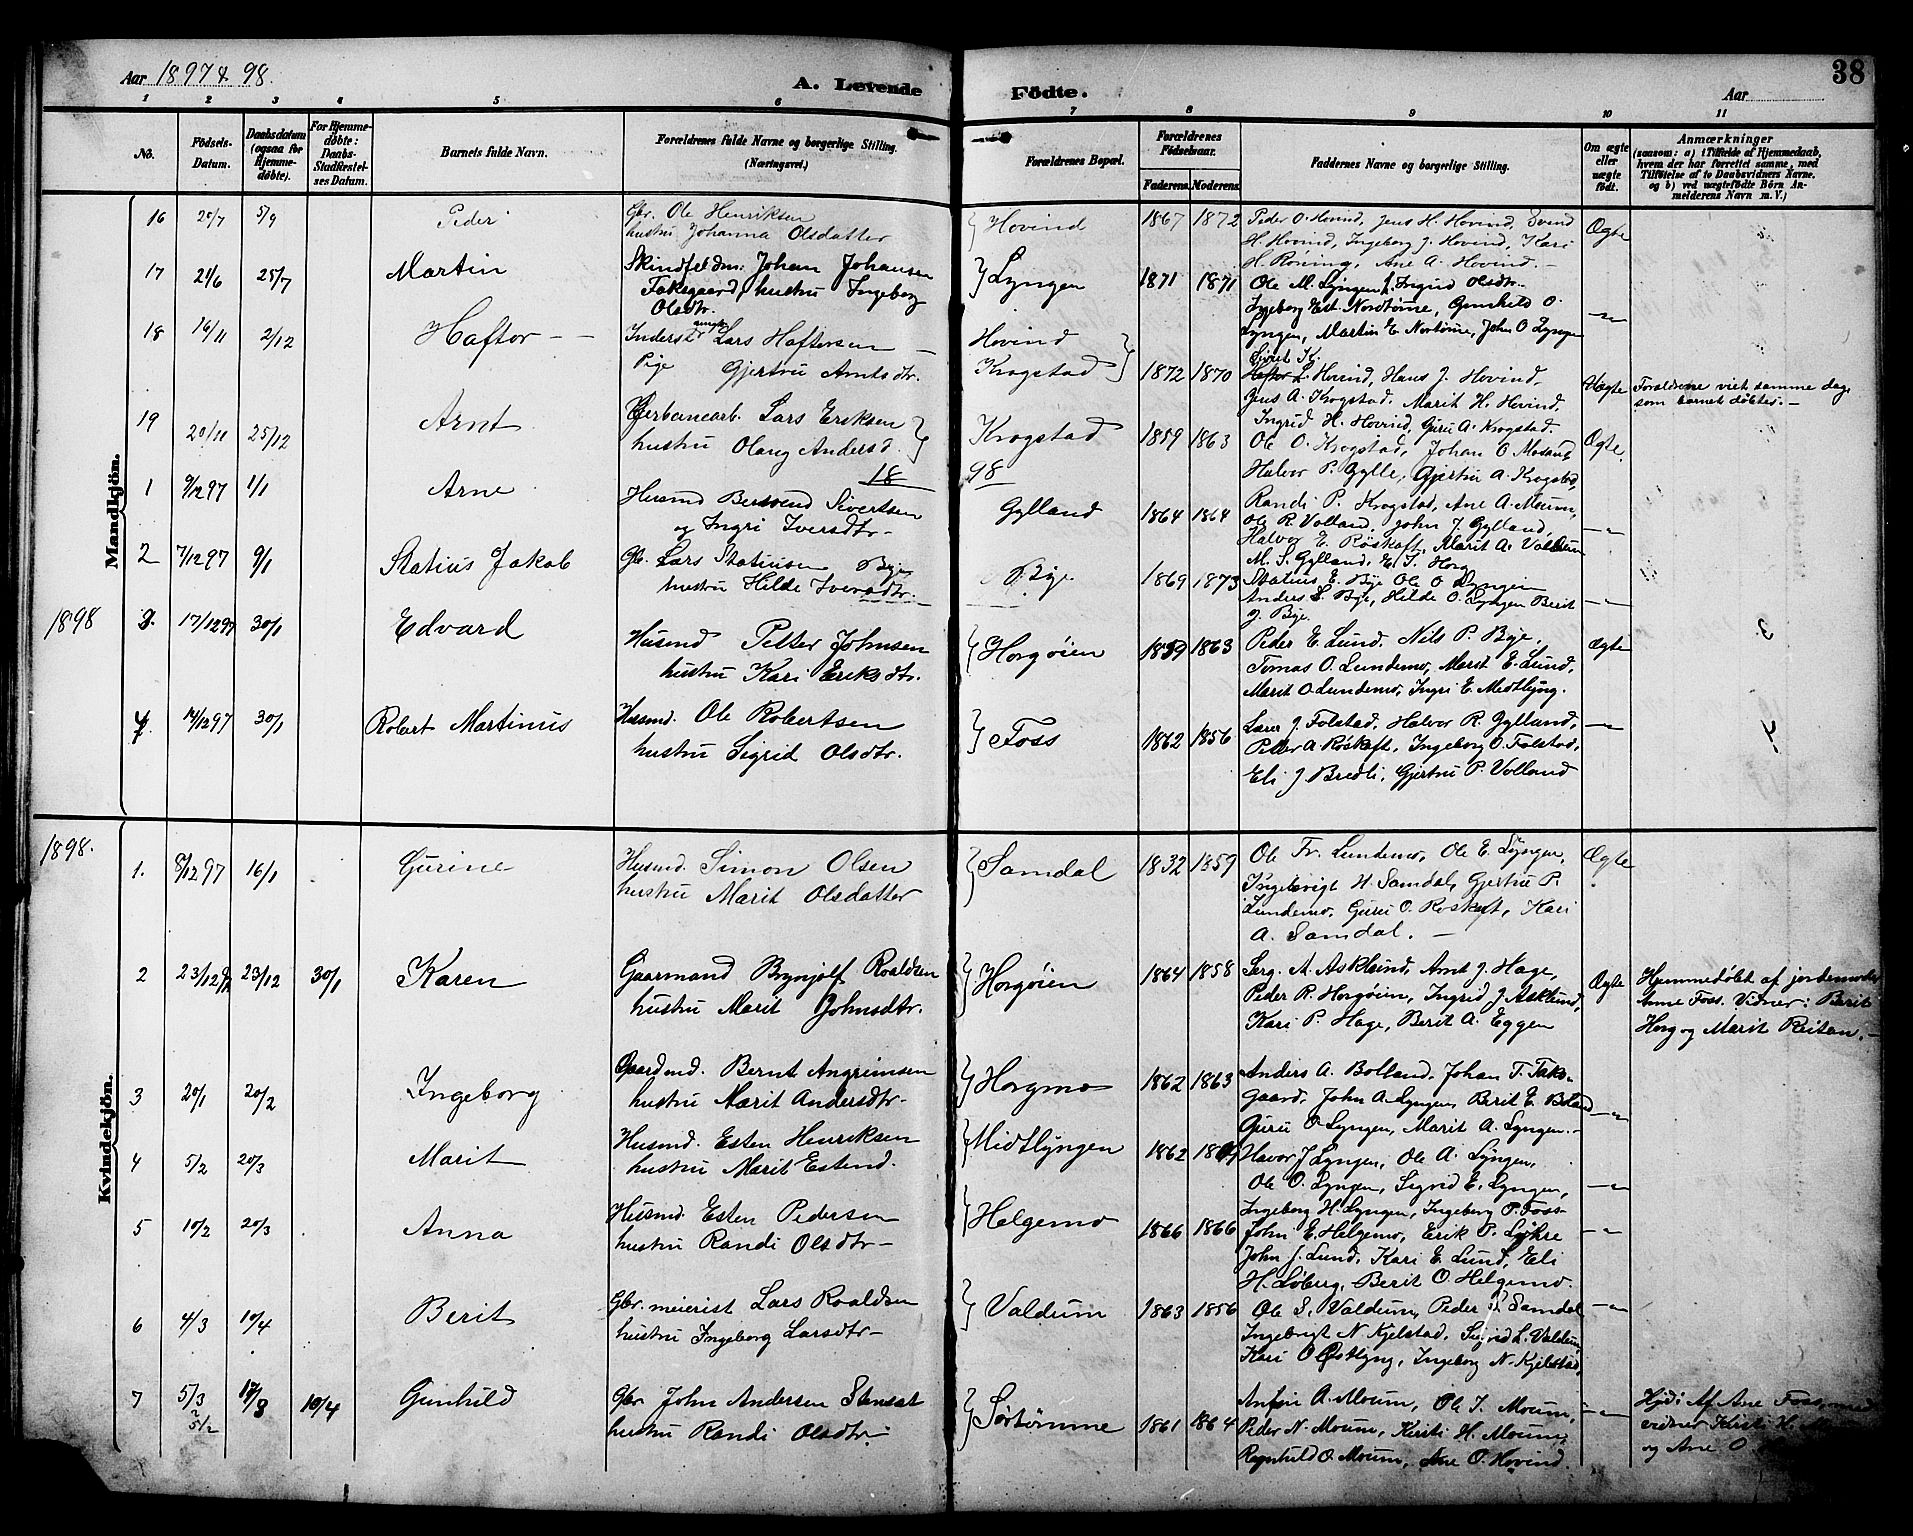 Aar 1897 & 98.
A. Levende Födte.
Aar
38
1 2 3 4 5 6 7 8 9 10 11
No.
Födsels-Datum.
Daabsdatum (ogsaa for Hjemme-döbte).
For Hjemme-döbte: Daabs-Stadfæstel-ses Datum.
Barnets fulde Navn.
Forældrenes fulde Navne og borgerlige Stilling. (Næringsvei.)
Forældrenes Bopæl.
Forældrenes Födselsaar.
Faderens. Moderens.
Faddernes Navne og borgerlige Stilling.
Om ægte eller uægte födt.
Anmærkninger
(saasom: a) i Tilfælde af Hjemmedaab, hvem der har forrettet samme, med Tilföielse af to Daabsvidners Navne, og b) ved uægtefödte Börn An-melderens Navn m. V.)
Mandkjön.
16 20/7 5/9 Peder
Gbr. Ole Henriksen
hustru Johanna Olsdatter
Hovind 1867 1872
Peder O. Hovind, Jens H. Hovind, Svend
H. Hovind, Ingeborg J. Hovind, Kari
H. Röning, Ane A. Hovind.
Ægte
17 21/6 25/7 Martin
Skindfeldm. Johan Johansen
Foksgaard, hustru Ingeborg
Olsdtr.
Lyngen 1871 1871
Ole M. Lyngen, Ingrid Olsdtr.
Ingeborg Est. Nordtömme, Gunhild O.
Lyngen, Martin E. Nortöme, John O. Lyngen
18 16/11 2/12 Haftor
Inderst Lars Haftorsen
Pige Gjertru Arntsdtr.
Hovind
Krogstad 1872 1870
Sivert K.
L. Hovind, Hans J. Hovind,
Jens A. Krogstad, Marit H. Hovind,
Ingrid H. Hovind, Guru A. Krogstad.
Uægte
Forældrene viet samme dag
som barnet döbtes. -
19 20/11 25/12 Arnt
Jerbanearb. Lars Eriksen
hustru Olaug Andersd.
Krogstad 1859 1863
Ole O. Krogstad, Johan O. Mosand,
Halvor P. Gylle, Gjertru A. Krogstad,
Ægte.
18 98
1 9/12 97 1/1 Arne
Husmd Bersvend Sivertsen
og Ingri Iversdtr.
Gylland 1864 1864
Randi P. Krogstad, Ane A. Moum,
Ole R. Volland, John J. Gylland,
Halvor E. Röskaft, Marit A. Valdum
M. S. Gylland, E. S. Horg
2 7/12 97 9/1 Statius Jakob
Gbr. Lars Statiusen Bye
hustru Hilde Iversdtr.
Bye 1869 1873
Statius E. Bye Ole O Lyngen
Anders L. Bye, Hilde O. Lyngen Berit
J. Bye.
1898
3. 17/12 97 30/1 Edvard
Husmd Petter Johnsen
hustru Kari Eriksdtr.
Horgöien 1859 1863
Peder E. Lund, Nils P. Bye,
Tomas O. Lundemo, Marit E. Lund,
Marit O. Lundemo, Ingri E. Midtlyng.
Ægte
4. 14/12 97 30/1 Robert Martinus
Husmd. Ole Robertsen
hustru Sigrid Olsdtr.
Foss 1862 1856
Lars J. Folstad, Halvor R. Gylland,
Petter A. Röskaft, Ingeborg O. Folstad,
Eli J. Bredli, Gjertru P. Volland
Kvindekjön.
1898.
1. 8/12 97 16/1 Gurine
Husmd. Simon Olsen
hustru Marit Olsdatter
Samdal 1832 1859
Ole Fr. Lundemo, Ole E. Lyngen,
Ingebrigt H. Samdal, Gjertru P.
Lundemo, Guru O. Röskaft, Kari
A. Samdal. -
Ægte
2 23/12 97 23/12 30/1 Karen
Gaarmand Brynjolf Roaldsen
hustru Marit Johnsdtr.
Horgöien 1864 1858
Serg. A. Asklund, Arnt J. Hage,
Peder R. Horgöien, Ingrid J. Asklund,
Kari P. Hage, Berit A. Eggen
Ægte
Hjemmedöbt af jordemoder
Anne Foss. Vidner: Berit
Horg og Marit Reitan. -
3 20/1 20/2 Ingeborg
Gaardmd. Bernt Angrimsen
hustru Marit Andersdtr.
Horgmo 1862 1863
Anders A. Bolland, Johan T. Foks-
Gaard, John A. Lyngen, Berit E. Boland
Guru O. Lyngen, Marit A. Lyngen.
4 5/2 20/3 Marit
Husmd. Esten Henriksen
hustru Marit Estend.
Midtlyngen 1862
Havor J Lyngen, Ole A. Lyngen,
Ole O. Lyngen, Sigrid E. Lyngen,
Ingeborg H. Lyngen, Ingeborg P. Foss
5 10/2 20/3 Anna
Husmd. Esten Pedersen
hustru Randi Olsdtr
Helgemo 1866 1866
John E. Helgemo, Erik P. Lökre
John J. Lund, Kari E. Lund, Eli
H. Löberg, Berit O. Helgemo.
6 4/3 10/4 Berit
Gbr. meierist Lars Roaldsen
hustru Ingeborg Larsdtr
Valdum 1863 1856
Ole S. Valdum, Peder S. Samdal
Ingebrigt N. Kjelstad, Sigrid L. Valdum,
Kari O Östlyng, Ingeborg N. Kjelstad,
7 5/3 5/2 10/4 Gunhild
Gbr John Andersen Stensat
hustru Randi Olsdtr.
Sörtömme 1861 1864
Anfin A. Moum, Ole I. Moum,
Peder N. Moum, Kirsti H. Moum,
Ragnhild O. Moum, Ane O. Hovind.
Hjd. Af Ane Foss, med
vidner Kirsti H.
og Ane O.